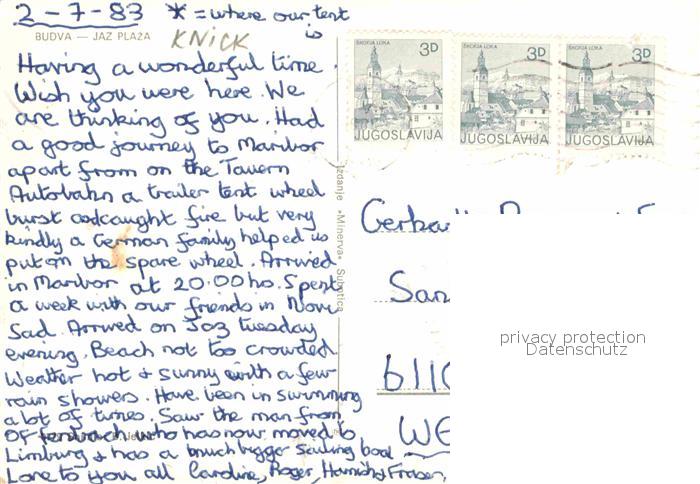 2-7-83 * = where our tent
is
BUDVA — JAZ PLAŽA
KNICK
Having a wonderful time.
Wish you were here. We
are thinking of you. Had
a good journey to Maribor
apart from on the Tauern
Autobahn a trailer tent wheel
burst and caught fire but very
kindly a German family helped us
put on the spare wheel. Arrived
in Maribor at 20.00 hs. Spent
a week with our friends in Novi
Sad. Arrived on Jaz tuesday
evening. Beach not too crowded
Weather hot & sunny with a few
rain showers. Have been in swimming
a lot of times. Saw the man from
who has now moved to
Limburg & has a much bigger sailing boat
Love to you all Caroline, Roger, Hamish & Fraser,
Izdanje »Minerva« Subotica
ŠKOFJA LOKA 3D JUGOSLAVIJA
ŠKOFJA LOKA 3D JUGOSLAVIJA
ŠKOFJA LOKA 3D JUGOSLAVIJA
San
611
WE
privacy protection
Datenschutz